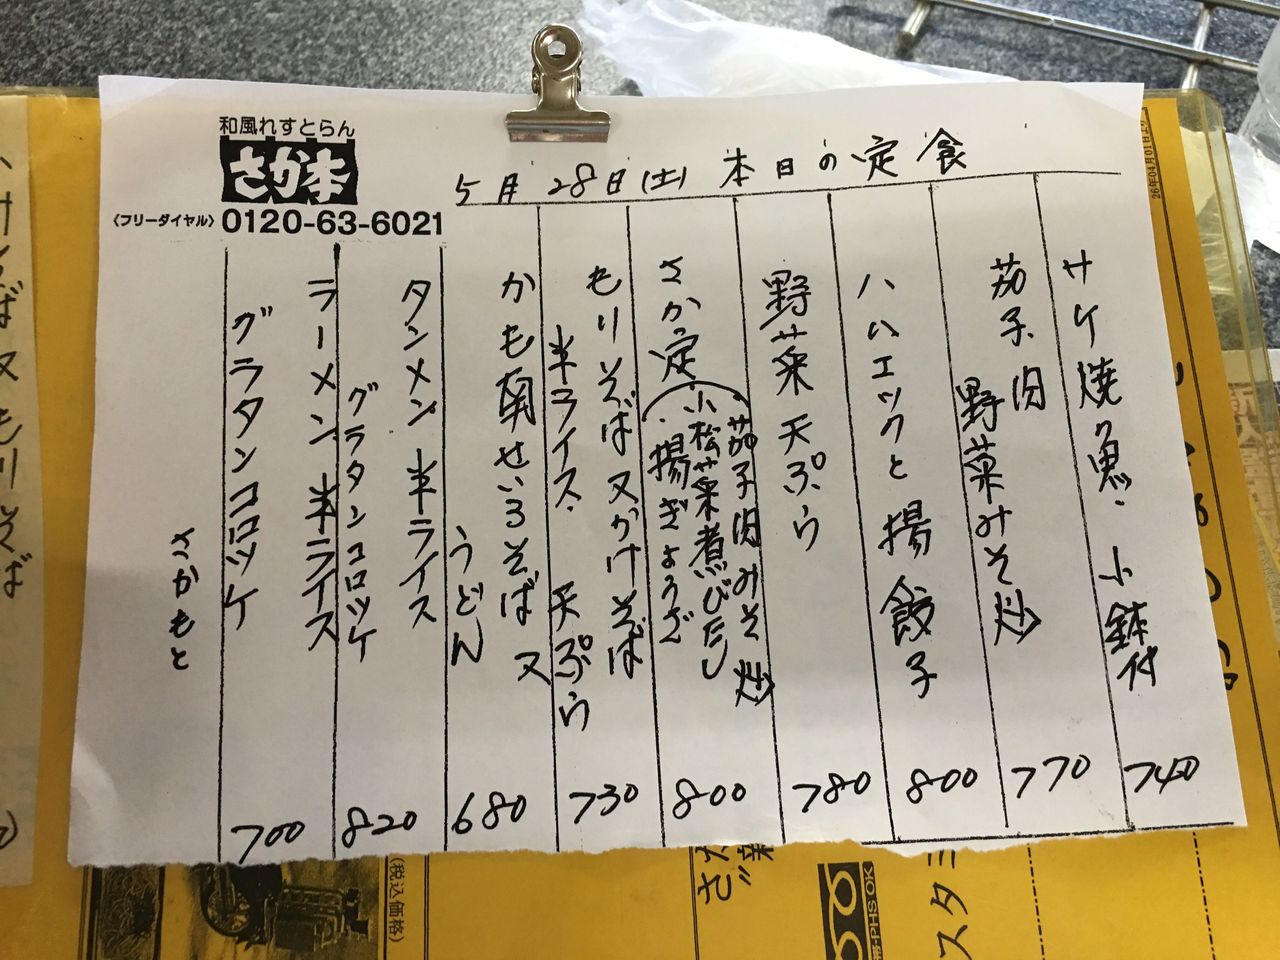 和風れすとらん
さか本
〈フリーダイヤル〉 0120-63-6021
5月28日(土) 本日の定食
サケ焼魚・小鉢付
740
茄子肉
野菜みそ炒
770
ハムエッグと揚餃子
800
野菜天ぷら
780
さか定
茄子肉みそ炒
小松菜煮びたし
揚ぎょうざ
800
もりそば又かけそば
半ライス 天ぷら
730
かも南せいろそば又
うどん
680
タンメン半ライス
グラタンコロッケ
820
ラーメン半ライス
グラタンコロッケ
700
さかもと
26年04月01日より
(税込価格)
スタミ